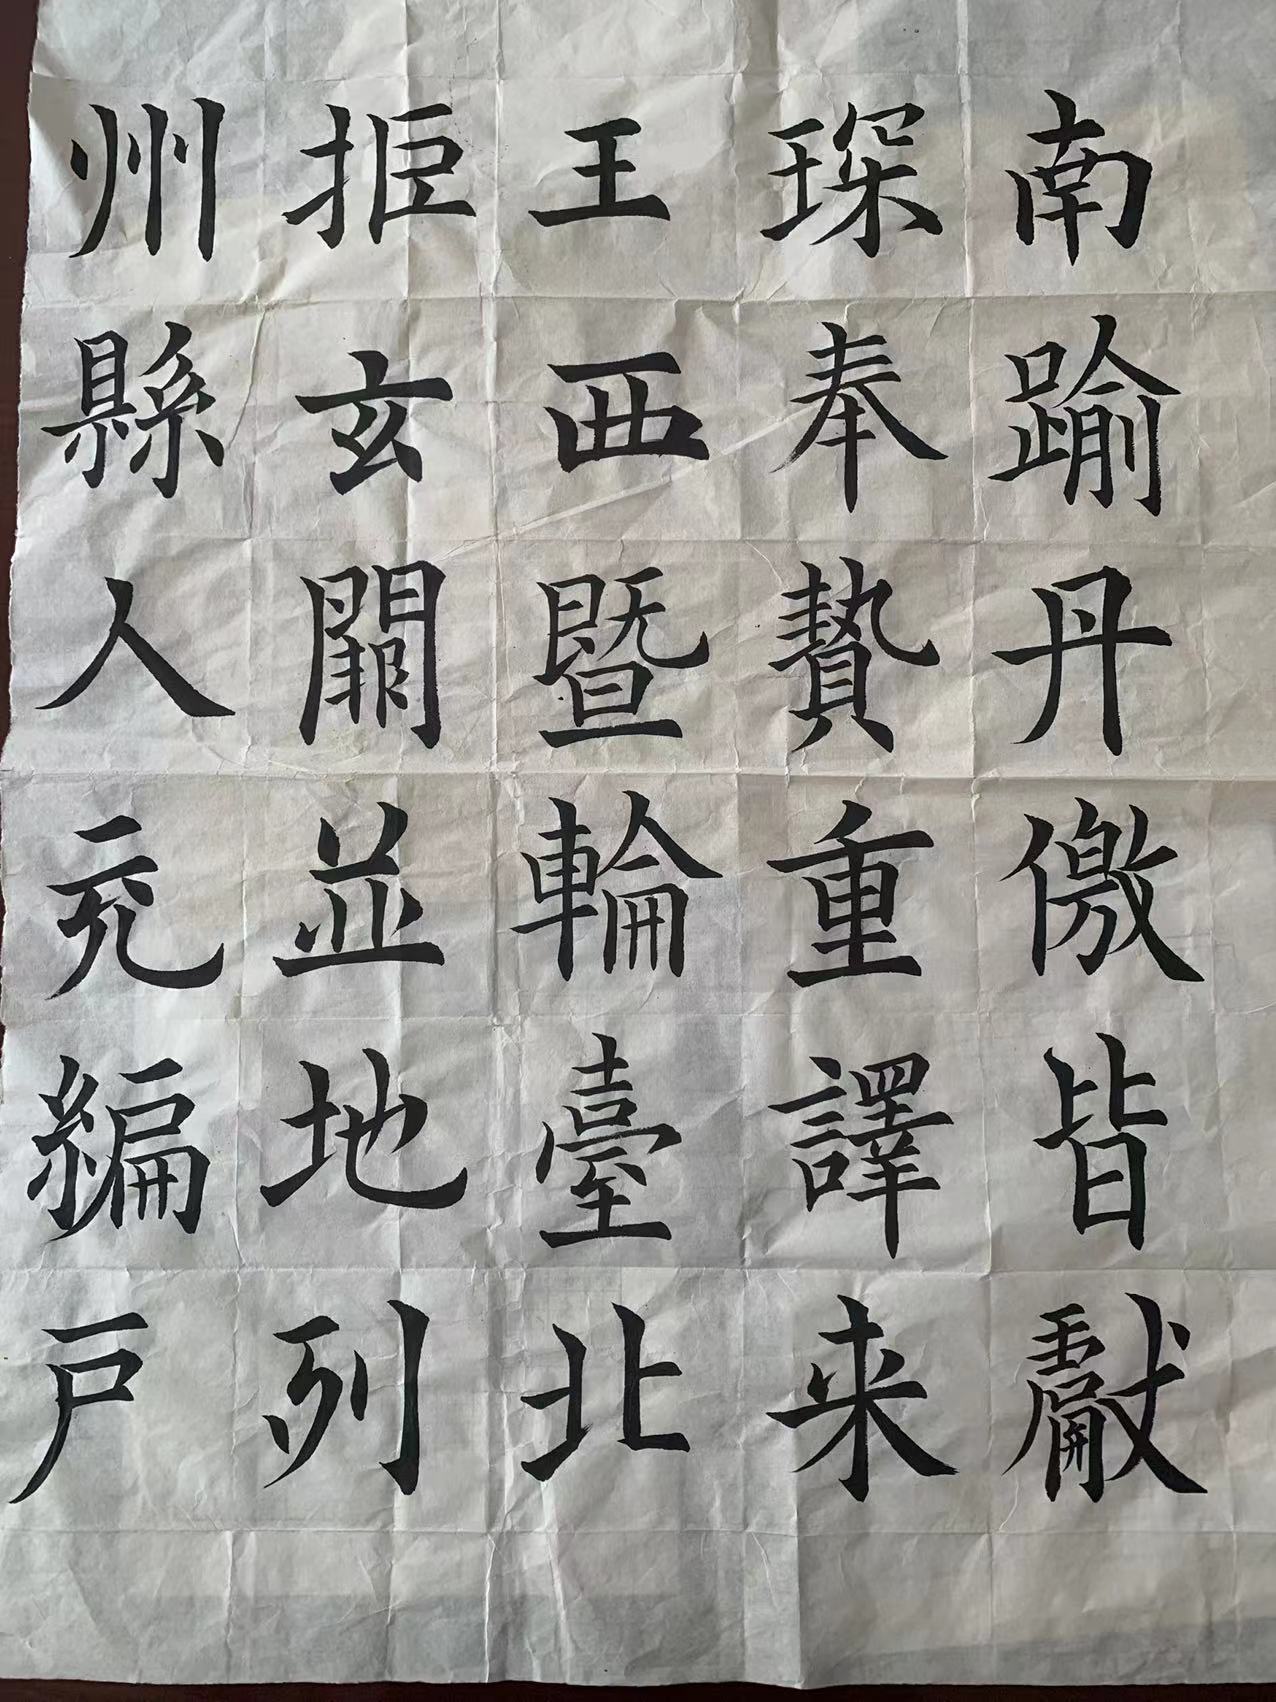 南踰丹儌皆獻
琛奉贄重譯来
王西暨輪臺北
拒玄闕並地列
州縣人充編戸